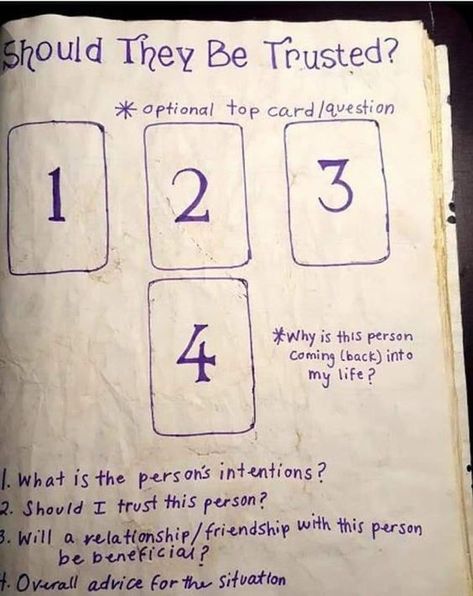 Should They Be Trusted?
* optional top card/question
1 2 3
4
*Why is this person
coming (back) into
my life?
1. What is the person's intentions?
2. Should I trust this person?
3. Will a relationship/friendship with this person
be beneficial?
4. Overall advice for the situation